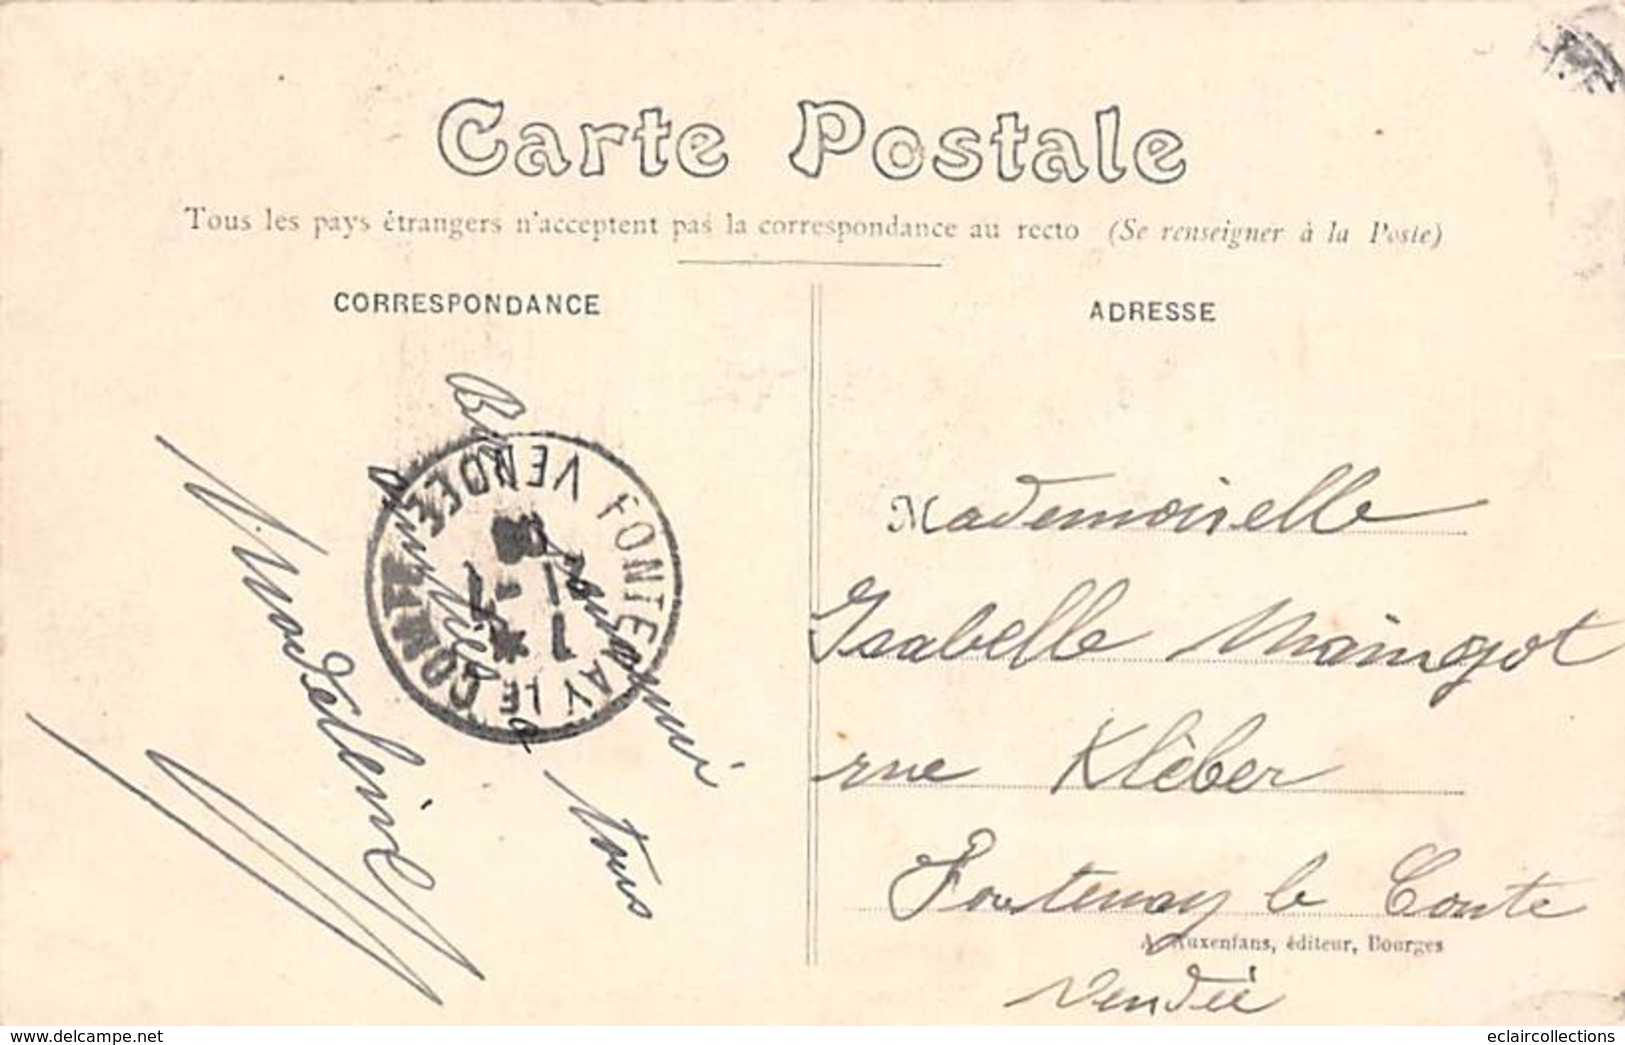 Carte Postale
Tous les pays étrangers n'acceptent pas la correspondance au recto (Se renseigner à la Poste)
CORRESPONDANCE
ADRESSE
FONTENAY LE COMTE
VENDÉE
à tous
Mademoiselle
Isabelle Maingot
rue Kléber
Fontenay le Comte
Vendée
A. Auxenfans, éditeur, Bourges
www.delcampe.net
eclaircollections